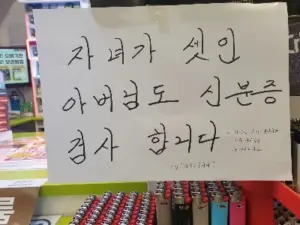 자녀가 셋인
아버님도 신분증
검사 합니다